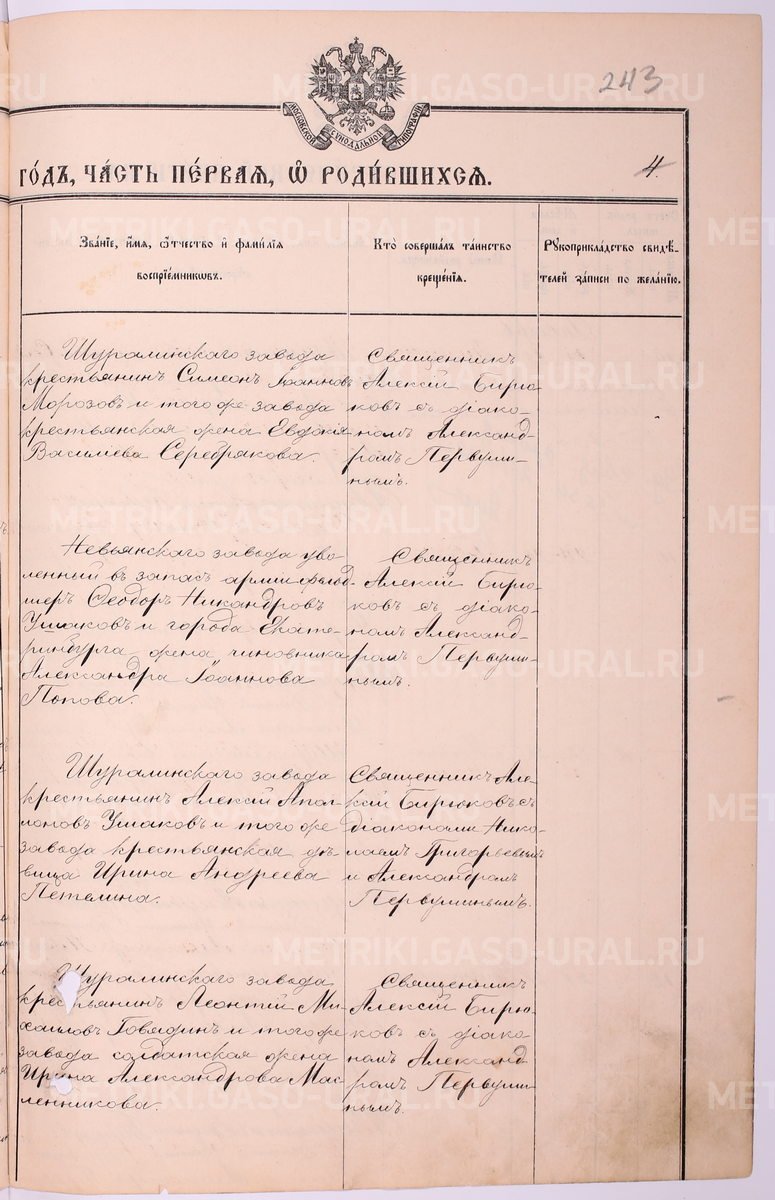 243
МОСКОВСКОЙ СѴНОДАЛЬНОЙ ТИПОГРАФІИ
ГО́ДЪ, ЧА́СТЬ ПЕ́РВАЯ, Ѡ҆ РОДИ́ВШИХСЯ.
4.
Зва́нїе, и҆́мя, ѻ҆́тчество и҆ фами́лїя
воспрїе́мникѡвъ.
Кто̀ соверша́лъ та́инство
креще́нїя.
Рꙋкоприкла́дство свидѣ́-
телей за́писи по жела́нїю.
Шуралинскаго завода
крестьянинъ Симеонъ Іоанновъ
Морозовъ и того же завода
крестьянская жена Евдокія
Василиева Серебрякова.
Священникъ
Алексій Бирю-
ковъ съ діако-
номъ Александ-
ромъ Первуши-
нымъ.
Невьянскаго завода уво-
ленный въ запасъ арміи фельд-
шеръ Ѳеодоръ Никандровъ
Ушаковъ и города Екате-
ринбурга жена чиновника
Александра Іоаннова
Попова.
Священникъ
Алексій Бирю-
ковъ съ діако-
номъ Александ-
ромъ Первуши-
нымъ.
Шуралинскаго завода
крестьянинъ Алексій Апол-
лоновъ Ушаковъ и того же
завода крестьянская дѣ-
вица Ирина Андреева
Петелина.
Священникъ Але-
ксій Бирюковъ съ
діаконами Нико-
лаемъ Григорьевымъ
и Александромъ
Первушинымъ.
Шуралинскаго завода
крестьянинъ Леонтій Ми-
хаиловъ Говядинъ и того же
завода солдатская жена
Ирина Александрова Мас-
ленникова.
Священникъ
Алексій Бирю-
ковъ съ діако-
номъ Александ-
ромъ Первуши-
нымъ.
METRIKI.GASO-URAL.RU